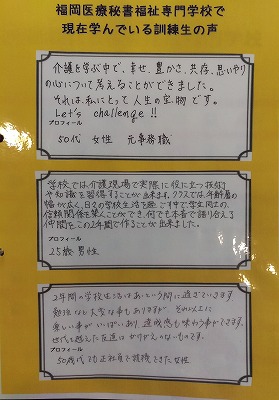 福岡医療秘書福祉専門学校で
現在学んでいる訓練生の声
介護を学ぶ中で、幸せ、豊かさ、共存、思いやり
の心について考えることができました。
それは、私にとって人生の宝物です。
Let's challenge!!
プロフィール
50代 女性 元事務職
学校では介護現場で実際に役に立つ技術
や知識を習得することが出来ます。クラスでは、年齢層の
幅が広く、日々の学校生活を過ごす中で学生同士の
信頼関係を築くことができ、何でも本音で語り合える
仲間をこの2年間で作ることが出来ました。
プロフィール
25歳 男性
2年間の学校生活はあっという間に過ぎていきます。
勉強など大変な事もありますが それ以上に
楽しい事がいっぱいあり 達成感も味わう事ができます。
世代を越えた友達は かけがえのないものです。
プロフィール
50歳代でも正社員で就職できた女性